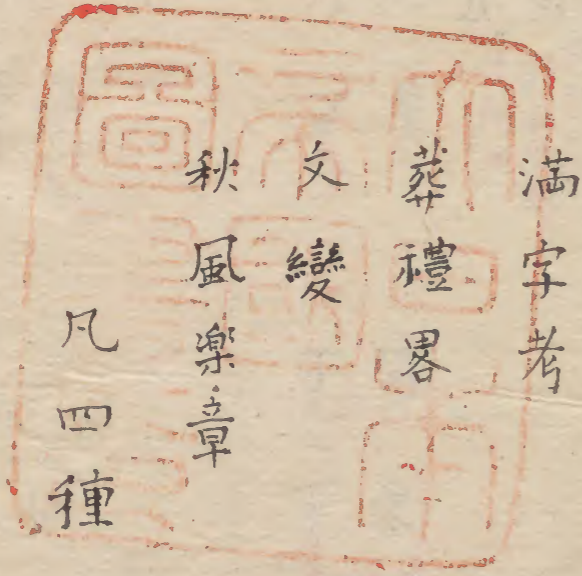 満字考
葬禮畧
文變
秋風楽章
凡四種